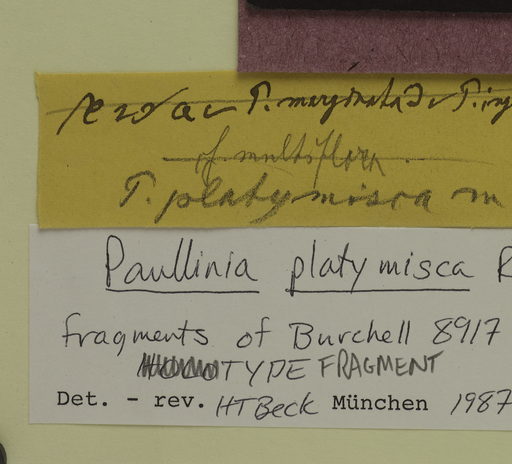 P. marginata
cf multiflora
P. platymisca m
Paullinia platymisca R
fragments of Burchell 8917
TYPE FRAGMENT
Det. - rev. HT Beck München 1987